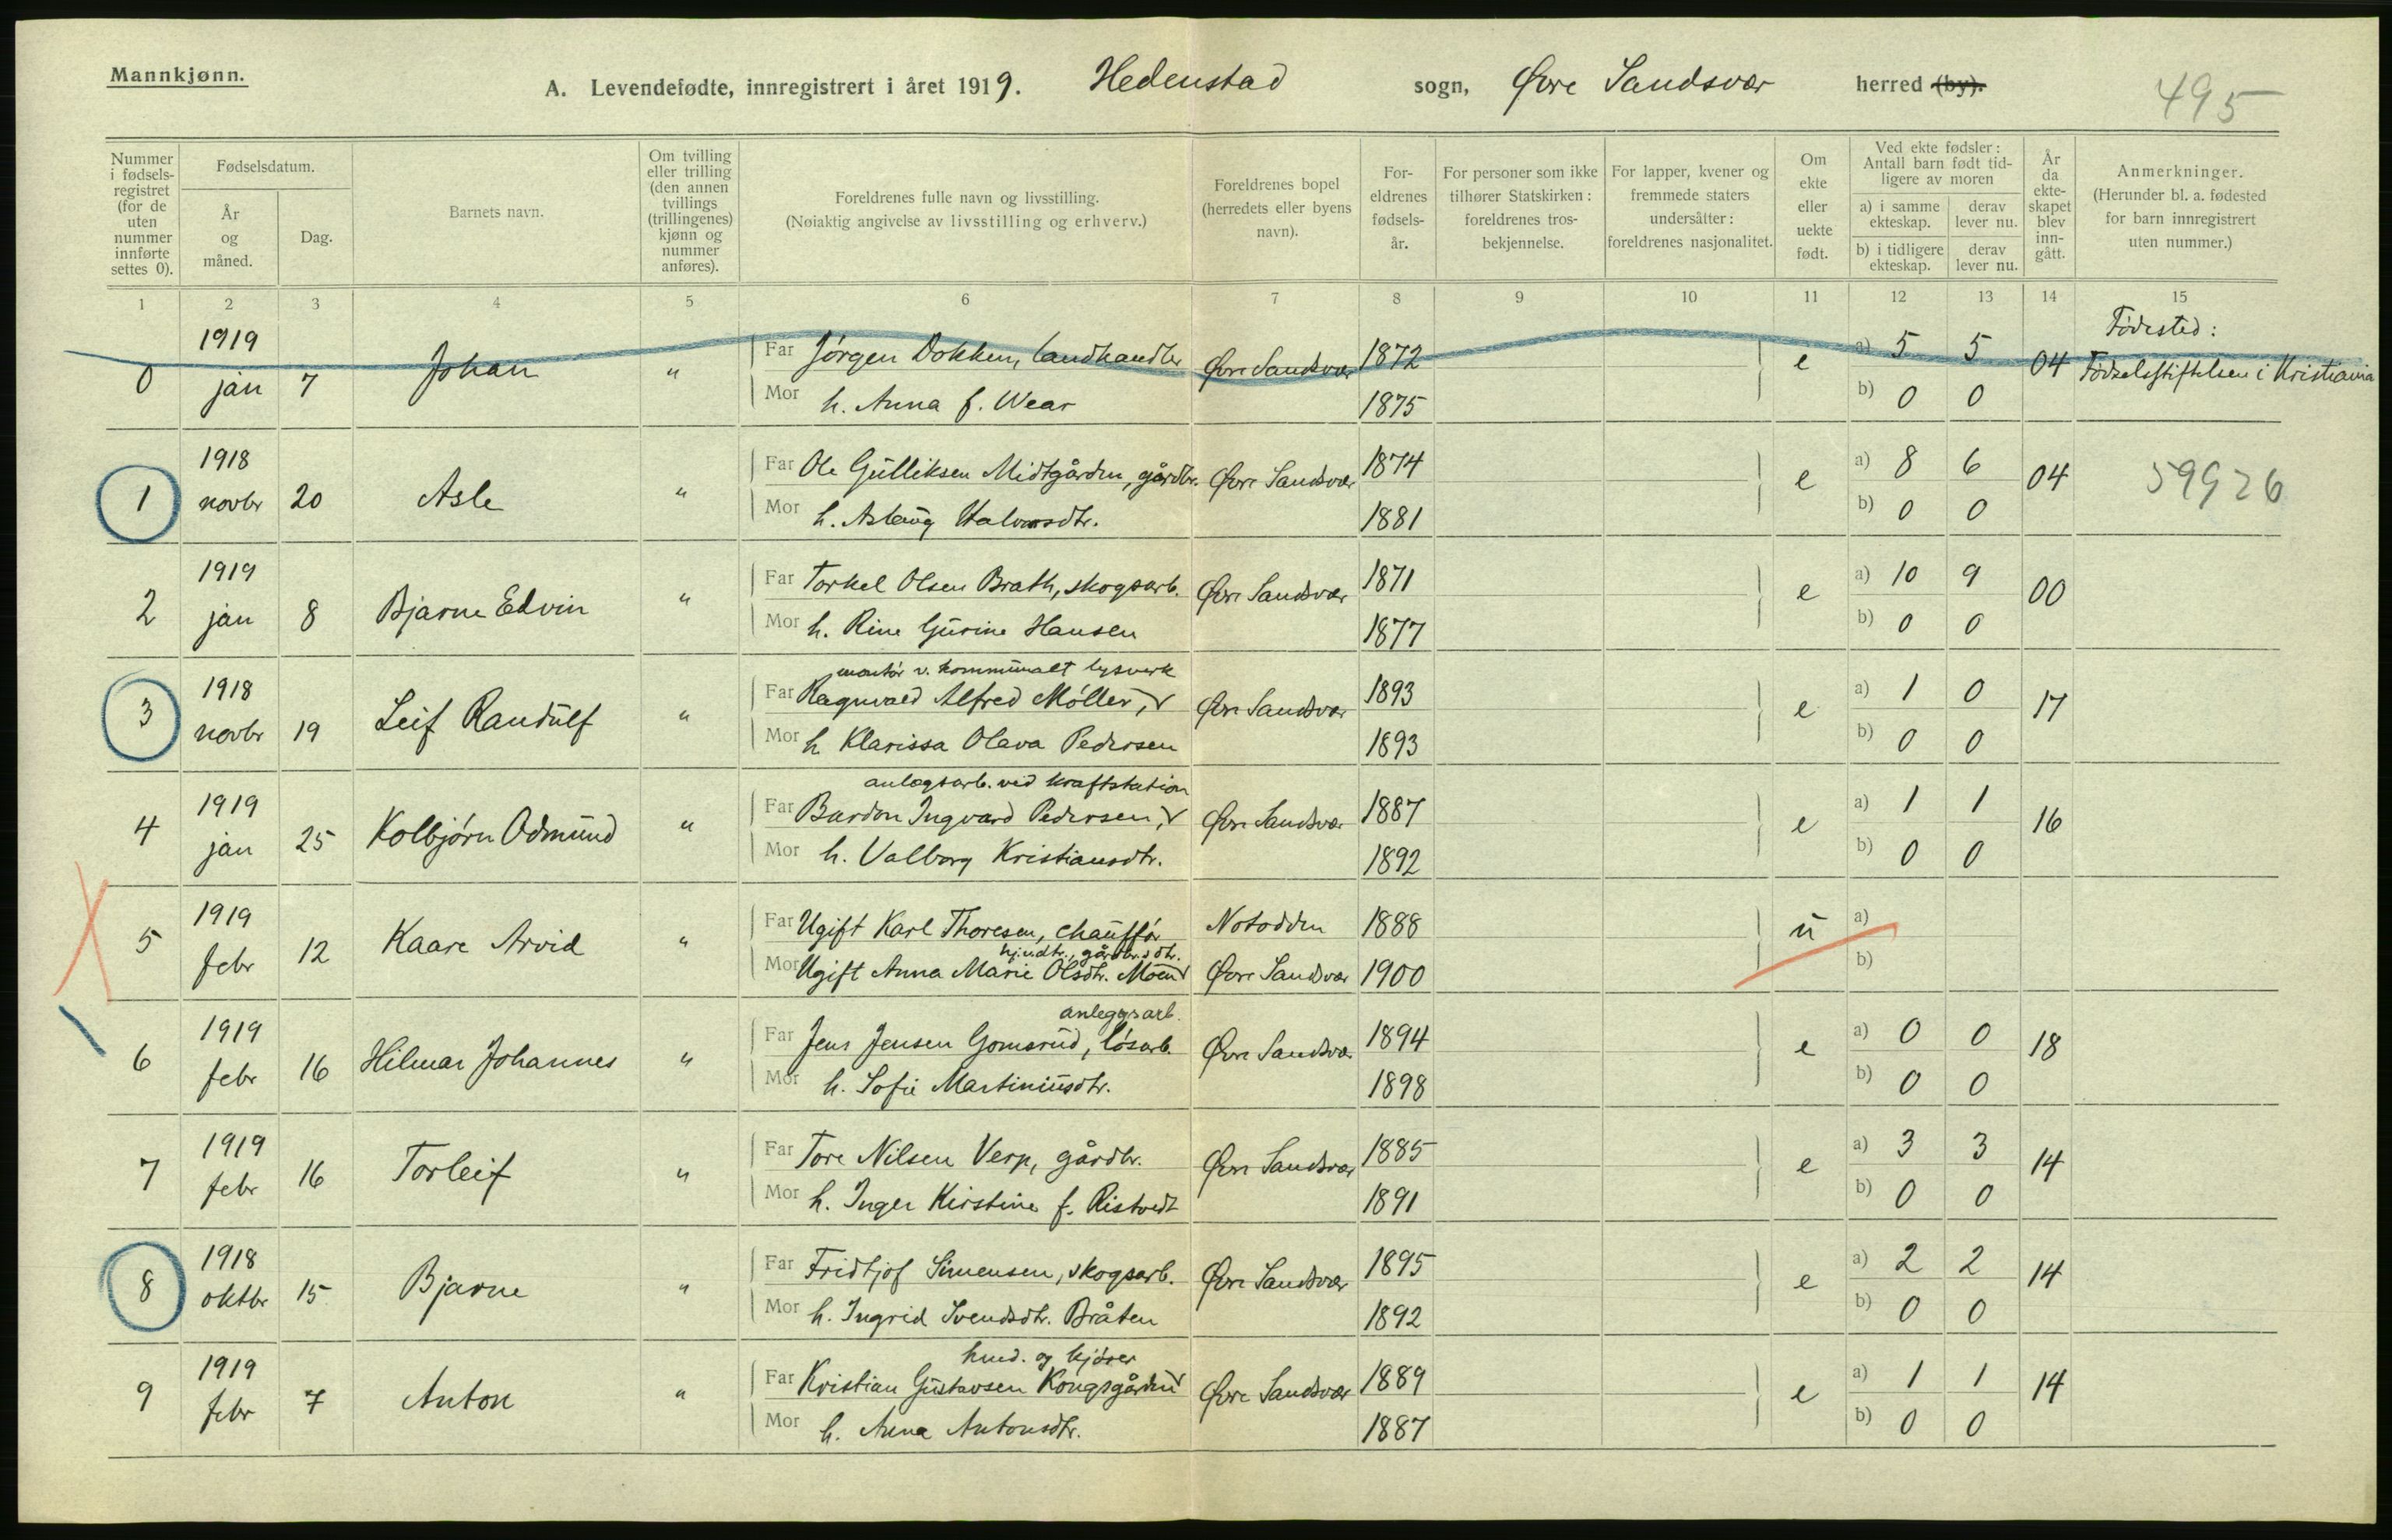 Mannkjønn.
A. Levendefødte, innregistrert i året 1919. Hedenstad sogn, Øvre Sandsvær herred (by).
495
Nummer i fødsels-registret (for de uten nummer innførte settes 0).
Fødselsdatum.
År og måned.
Dag.
Barnets navn.
Om tvilling eller trilling (den annen tvillings (trillingenes) kjønn og nummer anføres).
Foreldrenes fulle navn og livsstilling.
(Nøiaktig angivelse av livsstilling og erhverv.)
Foreldrenes bopel (herredets eller byens navn).
For-eldrenes fødsels-år.
For personer som ikke tilhører Statskirken: foreldrenes tros-bekjennelse.
For lapper, kvener og fremmede staters undersåtter: foreldrenes nasjonalitet.
Om ekte eller uekte født.
Ved ekte fødsler: Antall barn født tid-ligere av moren
a) i samme ekteskap.
derav lever nu.
b) i tidligere ekteskap.
derav lever nu.
År da ekte-skapet blev inn-gått.
Anmerkninger.
(Herunder bl. a. fødested for barn innregistrert uten nummer.)
1 2 3 4 5 6 7 8 9 10 11 12 13 14 15
0 1919 jan 7 Johan " Far Jørgen Dokken, landhandler Øvre Sandsvær 1872 e a) 5 5 04 Fødested: Fødselsstiftelsen i Kristiania
Mor h. Anna f. Wear 1875 b) 0 0
1 1918 novbr 20 Asle " Far Ole Gulliksen Midtgården, gårdbr. Øvre Sandsvær 1874 e a) 8 6 04 59926
Mor h. Aslaug Halvorsdtr. 1881 b) 0 0
2 1919 jan 8 Bjarne Edvin " Far Torkel Olsen Brath, skogsarb. Øvre Sandsvær 1871 e a) 10 9 00
Mor h. Rine Gurine Hansen 1877 b) 0 0
montør v. kommunalt lysverk
3 1918 novbr 19 Leif Randulf " Far Ragnvald Alfred Møller, Øvre Sandsvær 1893 e a) 1 0 17
Mor h Klarissa Olava Pedersen 1893 b) 0 0
anlegsarb. ved kraftstation
4 1919 jan 25 Kolbjørn Odmund " Far Bardon Ingvard Pedersen, Øvre Sandsvær 1887 e a) 1 1 16
Mor h. Valborg Kristiansdtr. 1892 b) 0 0
5 1919 febr 12 Kaare Arvid " Far Ugift Karl Thoresen, chauffør Notodden 1888 u a)
hj.v.dtr., gårdbr.s dtr.
Mor Ugift Anna Marie Olsdtr. Moen Øvre Sandsvær 1900 b)
anleggsarb.
6 1919 febr 16 Hilmar Johannes " Far Jens Jensen Gomsrud, løsarb. Øvre Sandsvær 1894 e a) 0 0 18
Mor h. Sofie Martiniusdtr. 1898 b) 0 0
7 1919 febr 16 Torleif " Far Tore Nilsen Verp, gårdbr. Øvre Sandsvær 1885 e a) 3 3 14
Mor h. Inger Kirstine f. Ristvedt 1891 b) 0 0
8 1918 oktbr 15 Bjarne " Far Fridtjof Simensen, skogsarb. Øvre Sandsvær 1895 e a) 2 2 14
Mor h. Ingrid Svendsdtr. Bråten 1892 b) 0 0
hmd. og kjører
9 1919 febr 7 Anton " Far Kristian Gustavsen Kongsgården Øvre Sandsvær 1889 e a) 1 1 14
Mor h. Anna Antonsdtr. 1887 b) 0 0